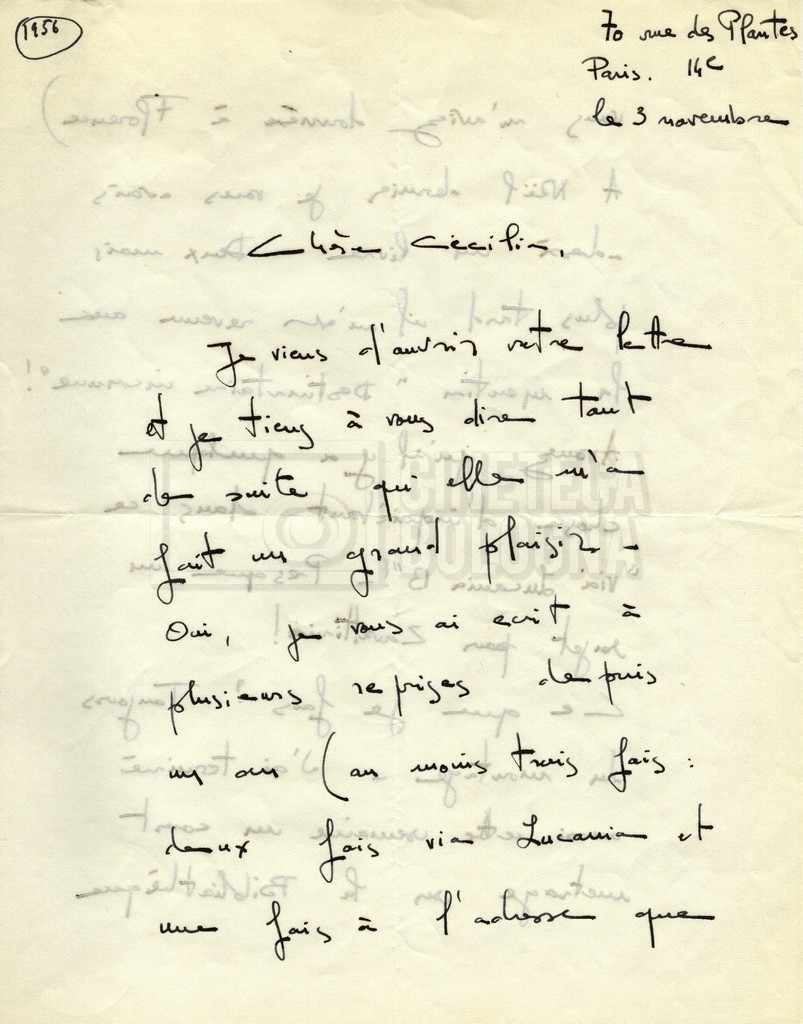 1956
70 rue des Plantes
Paris. 14e
le 3 novembre
Chère Cecilia,
Je viens d'ouvrir votre lettre
et je tiens à vous dire tout
de suite qu'elle m'a
fait un grand plaisir -
Oui, je vous ai ecrit à
plusieurs reprises depuis
un an (au moins trois fois :
deux fois via Lucania et
une fois à l'adresse que
CINETECA
BOLOGNA